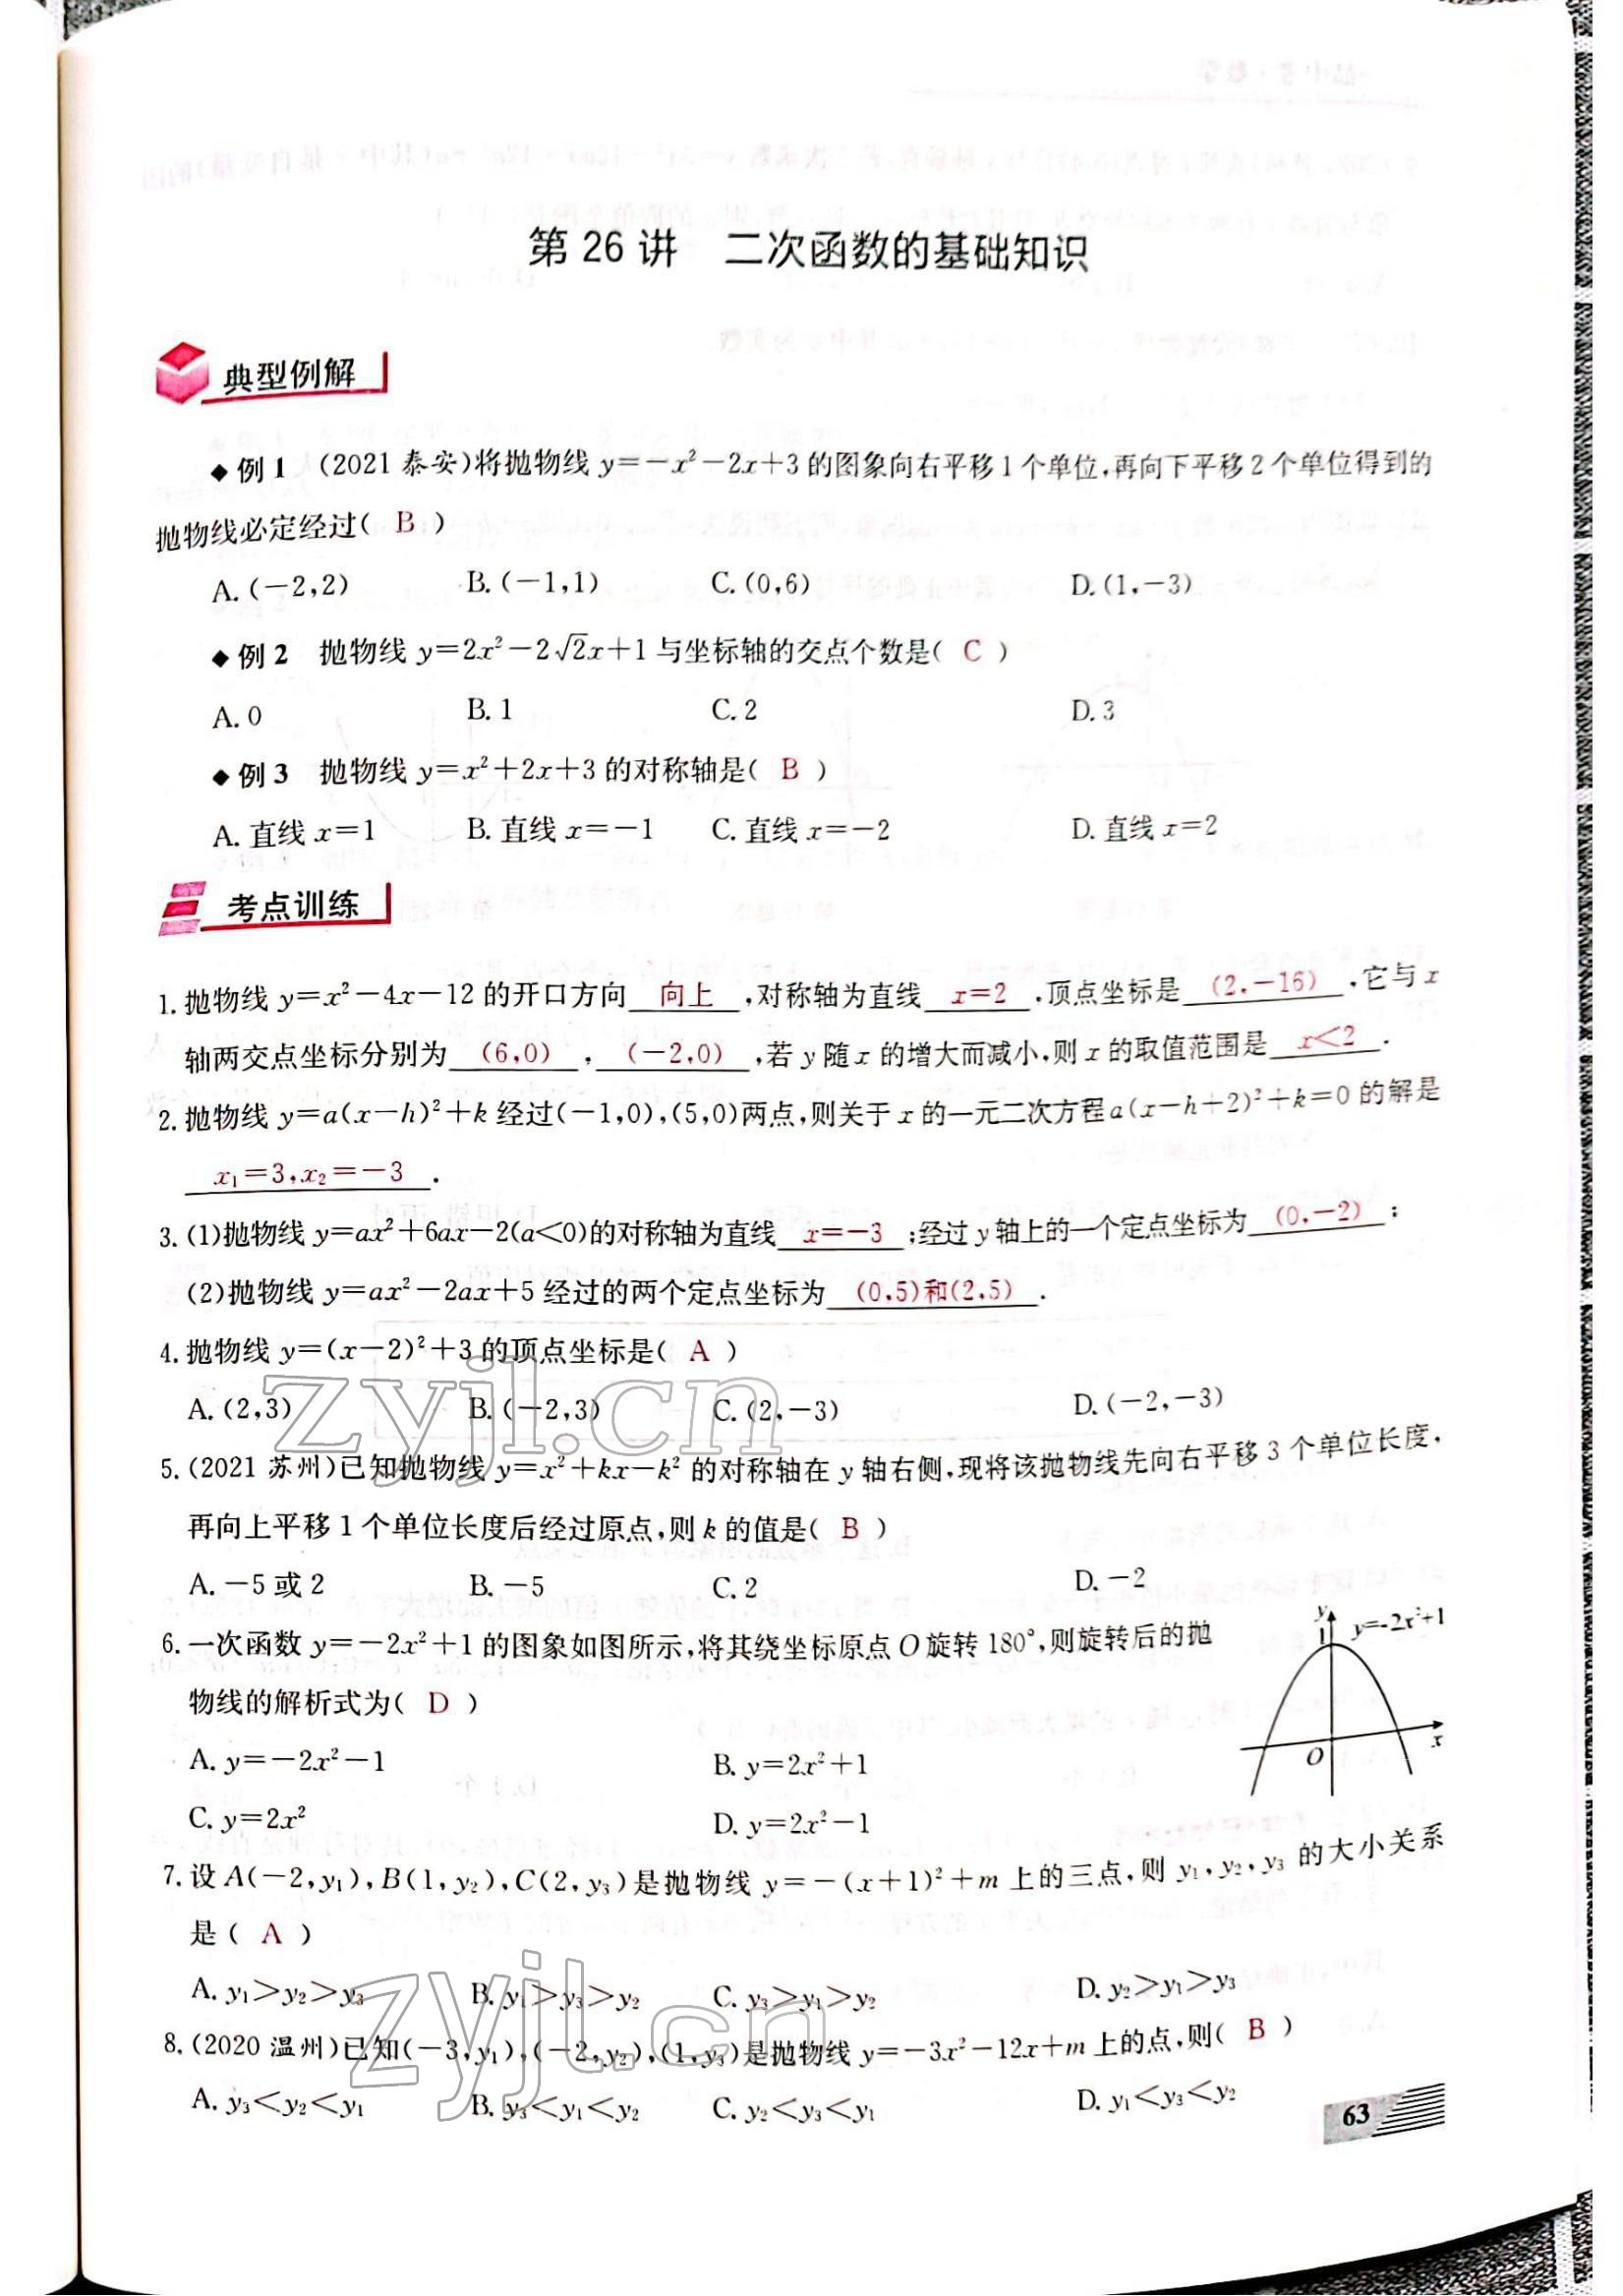 第 26 讲 二次函数的基础知识
典型例解
◆例 1 (2021 泰安)将抛物线 y=-x²-2x+3 的图象向右平移 1 个单位,再向下平移 2 个单位得到的
抛物线必定经过( B )
A. (-2,2) B. (-1,1) C. (0,6) D. (1,-3)
◆例 2 抛物线 y=2x²-2√2x+1 与坐标轴的交点个数是( C )
A. 0 B. 1 C. 2 D. 3
◆例 3 抛物线 y=x²+2x+3 的对称轴是( B )
A. 直线 x=1 B. 直线 x=-1 C. 直线 x=-2 D. 直线 x=2
考点训练
1. 抛物线 y=x²-4x-12 的开口方向 向上 ,对称轴为直线 x=2 ,顶点坐标是 (2,-16) ,它与 x
轴两交点坐标分别为 (6,0) , (-2,0) ,若 y 随 x 的增大而减小,则 x 的取值范围是 x<2 .
2. 抛物线 y=a(x-h)²+k 经过(-1,0),(5,0)两点,则关于 x 的一元二次方程 a(x-h+2)²+k=0 的解是
x₁=3,x₂=-3 .
3. (1)抛物线 y=ax²+6ax-2(a<0)的对称轴为直线 x=-3 ;经过 y 轴上的一个定点坐标为 (0,-2) ;
(2)抛物线 y=ax²-2ax+5 经过的两个定点坐标为 (0,5)和(2,5) .
4. 抛物线 y=(x-2)²+3 的顶点坐标是( A )
A. (2,3) B. (-2,3) C. (2,-3) D. (-2,-3)
5. (2021 苏州)已知抛物线 y=x²+kx-k² 的对称轴在 y 轴右侧,现将该抛物线先向右平移 3 个单位长度,
再向上平移 1 个单位长度后经过原点,则 k 的值是( B )
A. -5 或 2 B. -5 C. 2 D. -2
6. 一次函数 y=-2x²+1 的图象如图所示,将其绕坐标原点 O 旋转 180°,则旋转后的抛
物线的解析式为( D )
A. y=-2x²-1 B. y=2x²+1
C. y=2x² D. y=2x²-1
y
1
y=-2x²+1
O
x
7. 设 A(-2,y₁),B(1,y₂),C(2,y₃)是抛物线 y=-(x+1)²+m 上的三点,则 y₁,y₂,y₃ 的大小关系
是( A )
A. y₁>y₂>y₃ B. y₁>y₃>y₂ C. y₃>y₁>y₂ D. y₂>y₁>y₃
8. (2020 温州)已知(-3,y₁),(-2,y₂),(1,y₃)是抛物线 y=-3x²-12x+m 上的点,则( B )
A. y₃<y₂<y₁ B. y₃<y₁<y₂ C. y₂<y₃<y₁ D. y₁<y₃<y₂
63
zyjl.cn
zyjl.cn